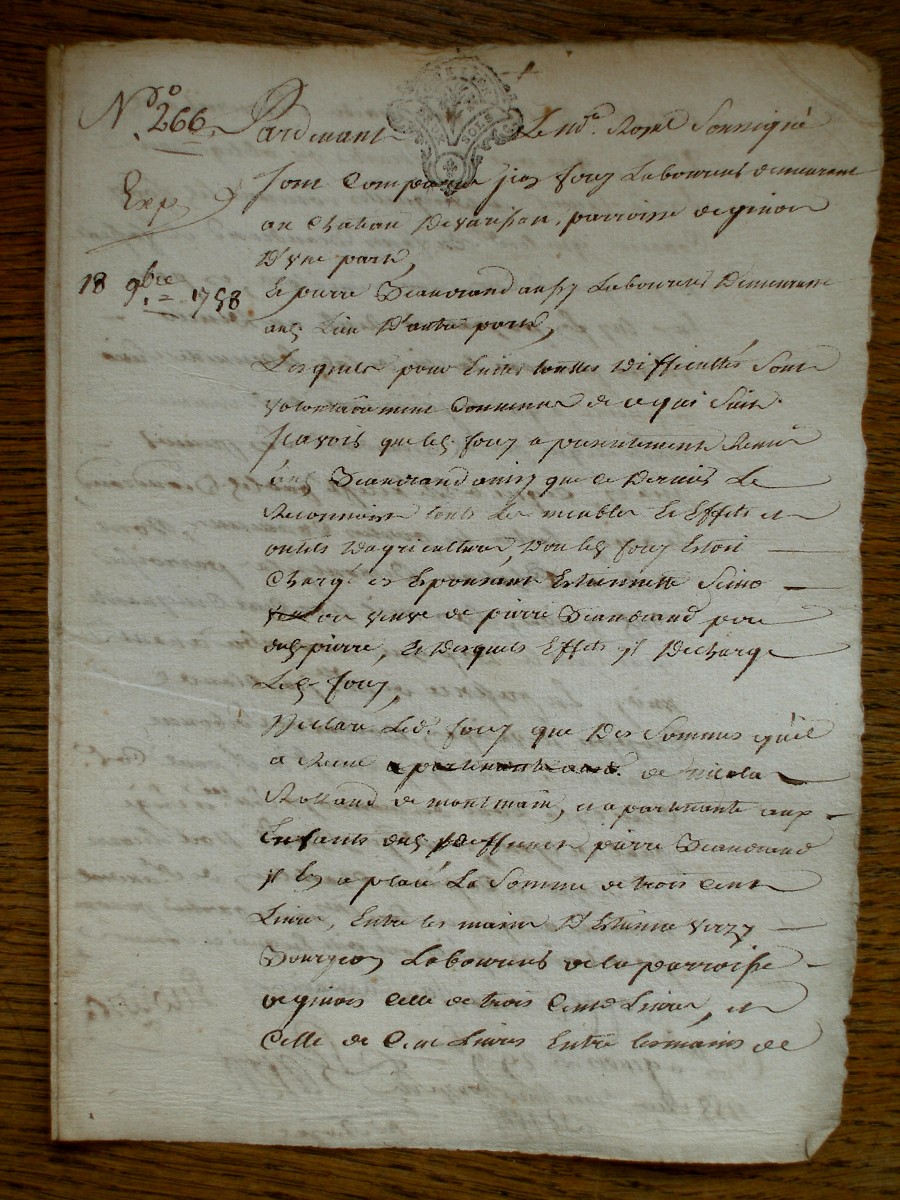 N° 266
Exp
18 9bre 1758
Pardevant Le no.re Royal Soussigné
sont Comparu Jean foury Laboureurs demeurant
au Chateau De parroisse de ginois
D'une part,
Et pierre Beaudrand aussy Laboureurs Demeurant
aud. Lieu D'autre part,
Lesquels pour Eviter touttes Difficultés Sont
volontairement Convenus de ce qui Suit
scavoir que led. foury a presentement Remis
aud. Beaudrand ainsy que ce Dernier Le
Reconnoist touts Les meubles Et Effets et
outils D'agriculture, Dont led. foury Estoit
Chargé en Epousant Estiennette
veuve de pierre Beaudrand pere
dud. pierre, Et Desquels Effets il Decharge
Led. foury,
Declare Led. foury que Des Sommes qu'il
a Receu de nicolas
Rolland de montmain, et apartenante aux
Enfants dud. Deffunct pierre Beaudrand
il en a placé La Somme de trois Cent
Livres, Entre les mains D'Estienne
Bourgeon Laboureurs de la parroisse
de ginois Celle de trois Cent Livres, et
Celle de Cent Livres Entre les mains de